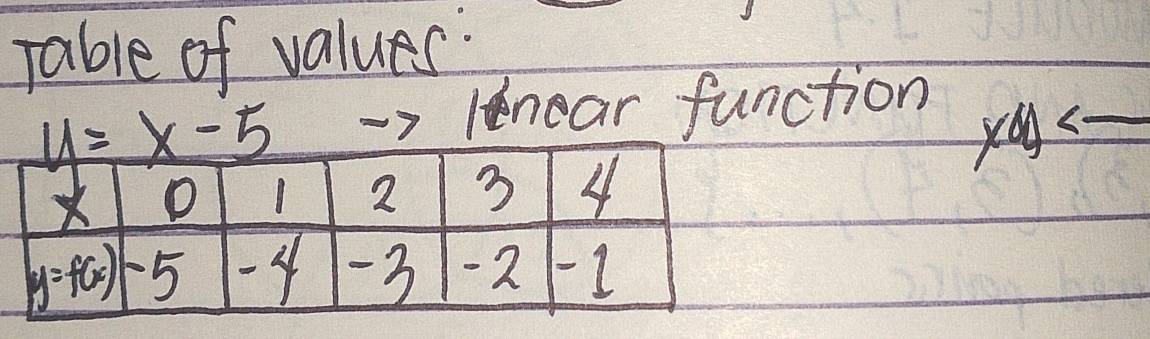 Table of values:
y = x - 5 -> linear function
x 0 1 2 3 4
y=f(x) -5 -4 -3 -2 -1